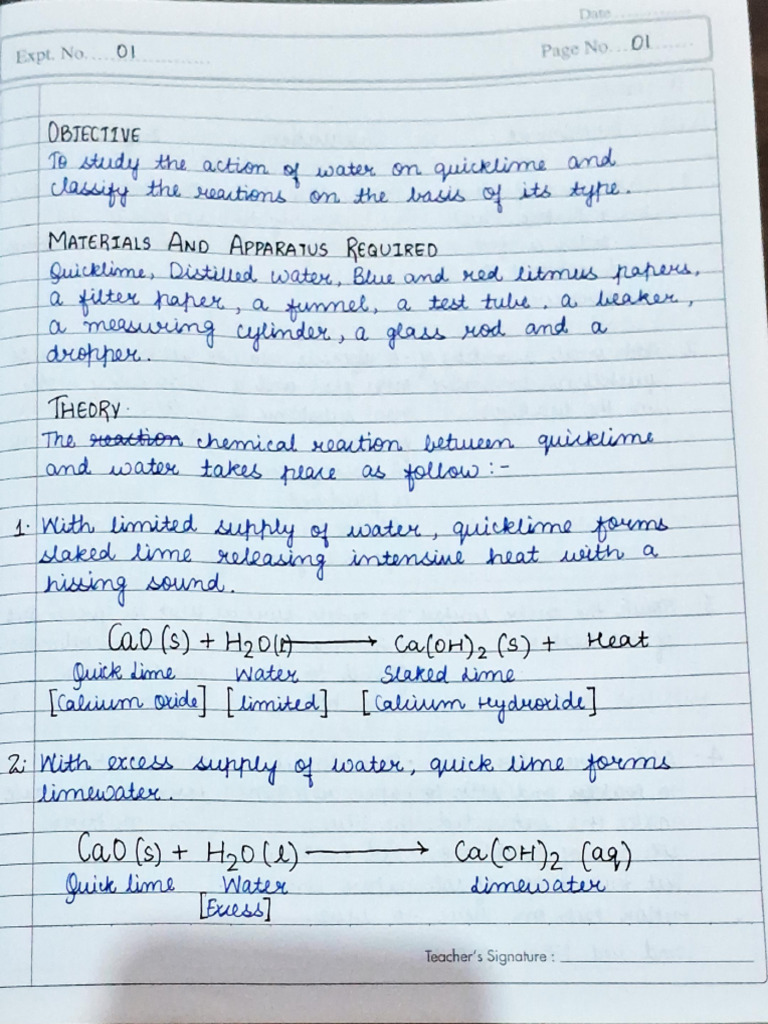 Date
Expt. No. 01
Page No. 01
OBJECTIVE
To study the action of water on quicklime and
classify the reactions on the basis of its type.
MATERIALS AND APPARATUS REQUIRED
Quicklime, Distilled water, Blue and red litmus papers,
a filter paper, a funnel, a test tube, a beaker,
a measuring cylinder, a glass rod and a
dropper.
THEORY.
The reaction chemical reaction between quicklime
and water takes place as follow :-
1. With limited supply of water, quicklime forms
slaked lime releasing intensive heat with a
hissing sound.
CaO(s) + H₂O(l) → Ca(OH)₂ (s) + Heat
Quick Lime Water Slaked Lime
[Calcium Oxide] [limited] [Calcium Hydroxide]
2. With excess supply of water, quick lime forms
limewater.
CaO(s) + H₂O(l) → Ca(OH)₂ (aq)
Quick lime Water limewater
[Excess]
Teacher's Signature :